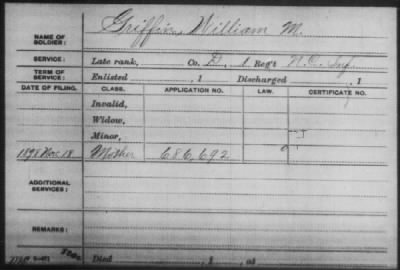 NAME OF SOLDIER: Griffin, William M.
SERVICE: Late rank, Co. D, 1 Reg't N.C. Inf.
TERM OF SERVICE: Enlisted , 1 Discharged , 1
DATE OF FILING. CLASS. APPLICATION NO. LAW. CERTIFICATE NO.
Invalid,
Widow,
Minor,
1898 Nov. 18 Mother 686,692
ADDITIONAL SERVICES:
REMARKS:
Died , 1 , at